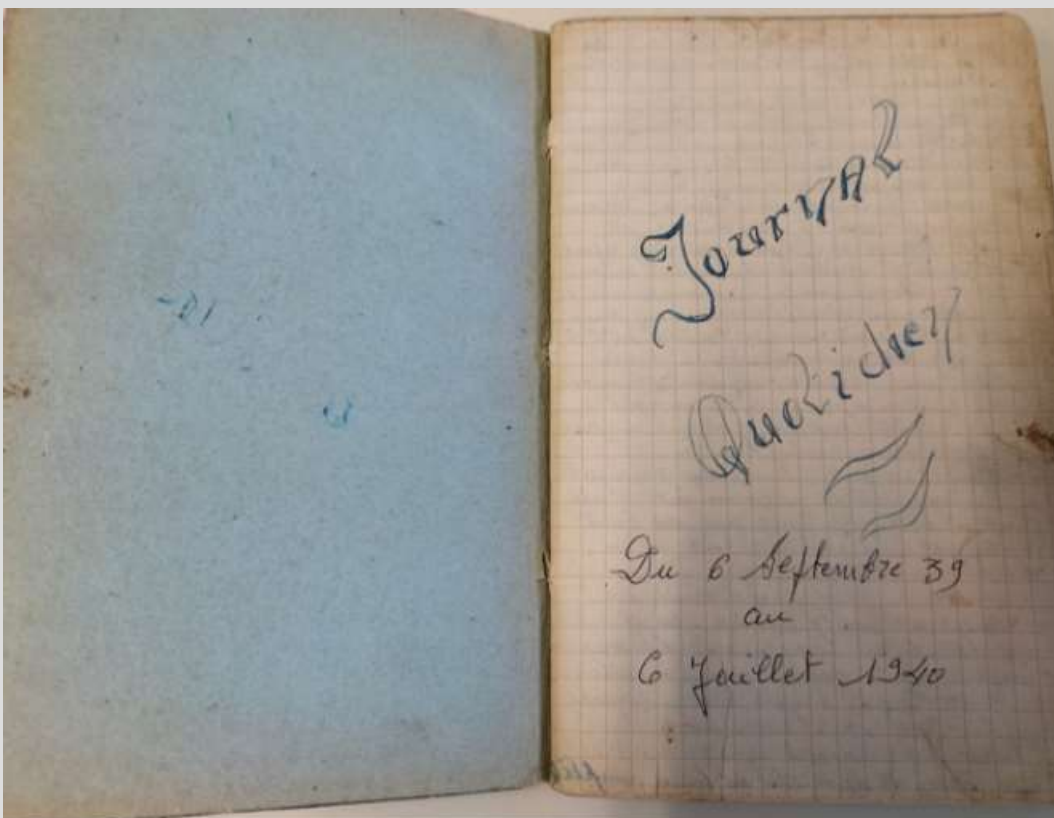 Journal
Quotidien
Du 6 Septembre 39
au
6 Juillet 1940